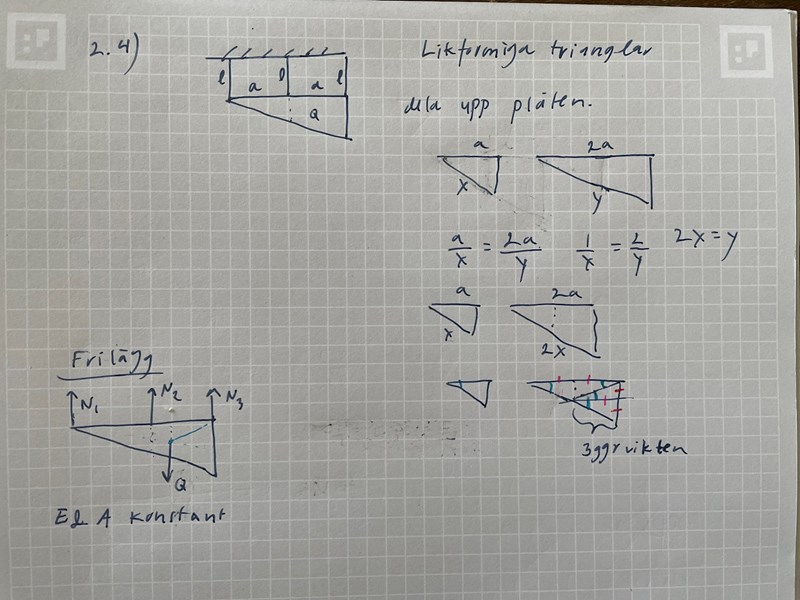 2.4)
Likformiga trianglar
l a l a l
Q
dela upp plåten.
a 2a
x y
a/x = 2a/y 1/x = 2/y 2x = y
a 2a
x 2x
3ggr vikten
Frilägg
N1 N2 N3
Q
E & A konstant